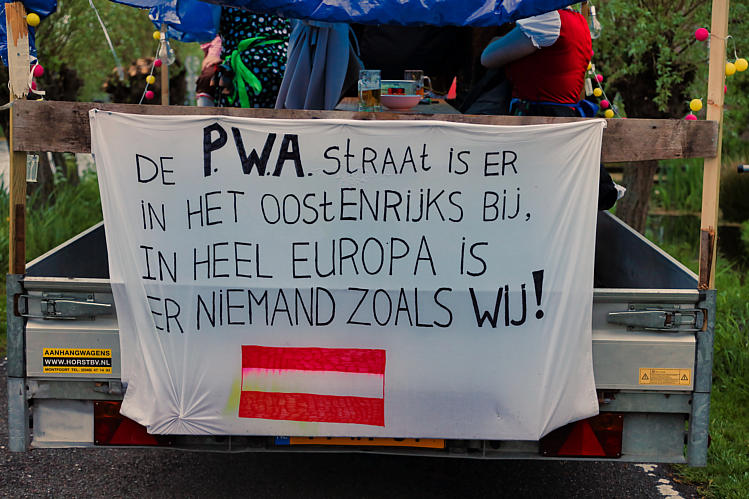 DE P.W.A. StRAAt IS ER
IN HET OOStENRIJKS BIJ,
IN HEEL EUROPA IS
ER NIEMAND ZOALS WIJ!
AANHANGWAGENS
WWW.HORSTBV.NL